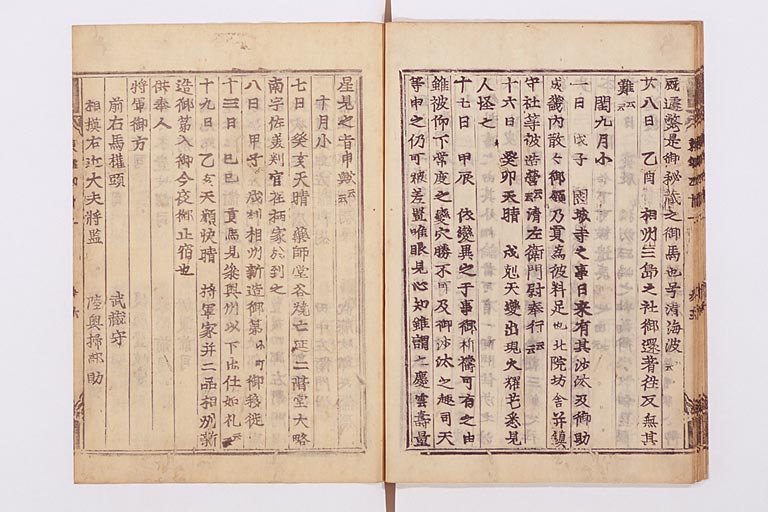 厩遷鼇是御秘蔵之御馬也号清海波云々
廿八日 乙酉 相州三島之社御還著往反無其
難云々
閏九月小
一日 戊子 園城寺之事日来有其沙汰及御助
成畿内散々御願乃貢為彼料足也北院坊舎并鎮
守社等被造営云々清左衛門尉奉行云々
十六日 癸卯天晴 戌剋天変出現大耀芒悉見
人怪之
十七日 甲辰 依変異之子事御祈禱可有之由
雖被仰下常度之変穴勝不可及御沙汰之趣司天
等申之仍可被差置唯眼見心知雖謂之慶雲寿量
星見之旨申歟云々
十月小
七日 癸亥天晴 薬師堂谷焼亡延二階堂大略
南宇佐美判官在柄家於到之
八日 甲子 戌剋相州新造御第 御移徙
十三日 己巳 貢馬見参奥州以下出仕如礼云々
十九日 乙亥天顔快晴 将軍家并二品相州新
造御第入御今夜御止宿也
供奉人
将軍御方
前右馬権頭 武蔵守
相模右近大夫将監 陸奥掃部助